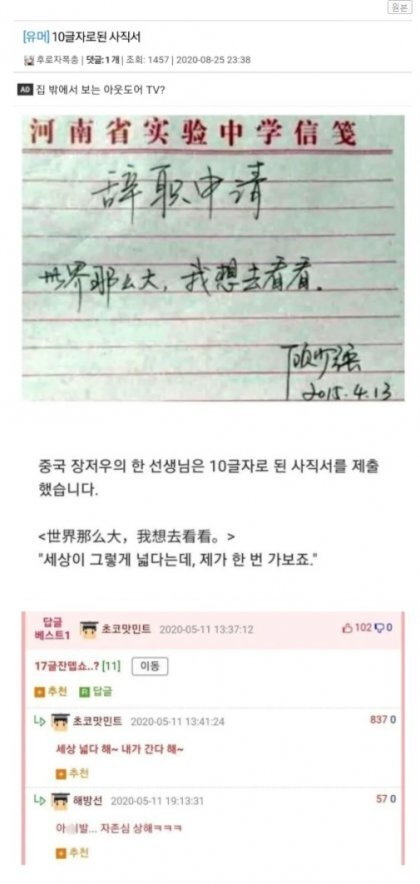 원본
[유머] 10글자로된 사직서
후로자폭송 | 댓글: 1 개 | 조회: 1457 | 2020-08-25 23:38
AD 집 밖에서 보는 아웃도어 TV?
河南省实验中学信笺
辞职申请
世界那么大，我想去看看.
顾少强
2015.4.13
중국 장저우의 한 선생님은 10글자로 된 사직서를 제출
했습니다.
<世界那么大，我想去看看。>
"세상이 그렇게 넓다는데, 제가 한 번 가보죠."
답글
베스트1
초코맛민트 2020-05-11 13:37:12
102 0
17글잔뎁쇼..? [11] 이동
추천 R 답글
초코맛민트 2020-05-11 13:41:24
837 0
세상 넓다 해~ 내가 간다 해~
추천
해방선 2020-05-11 19:13:31
57 0
자존심 상해ㅋㅋㅋ
추천